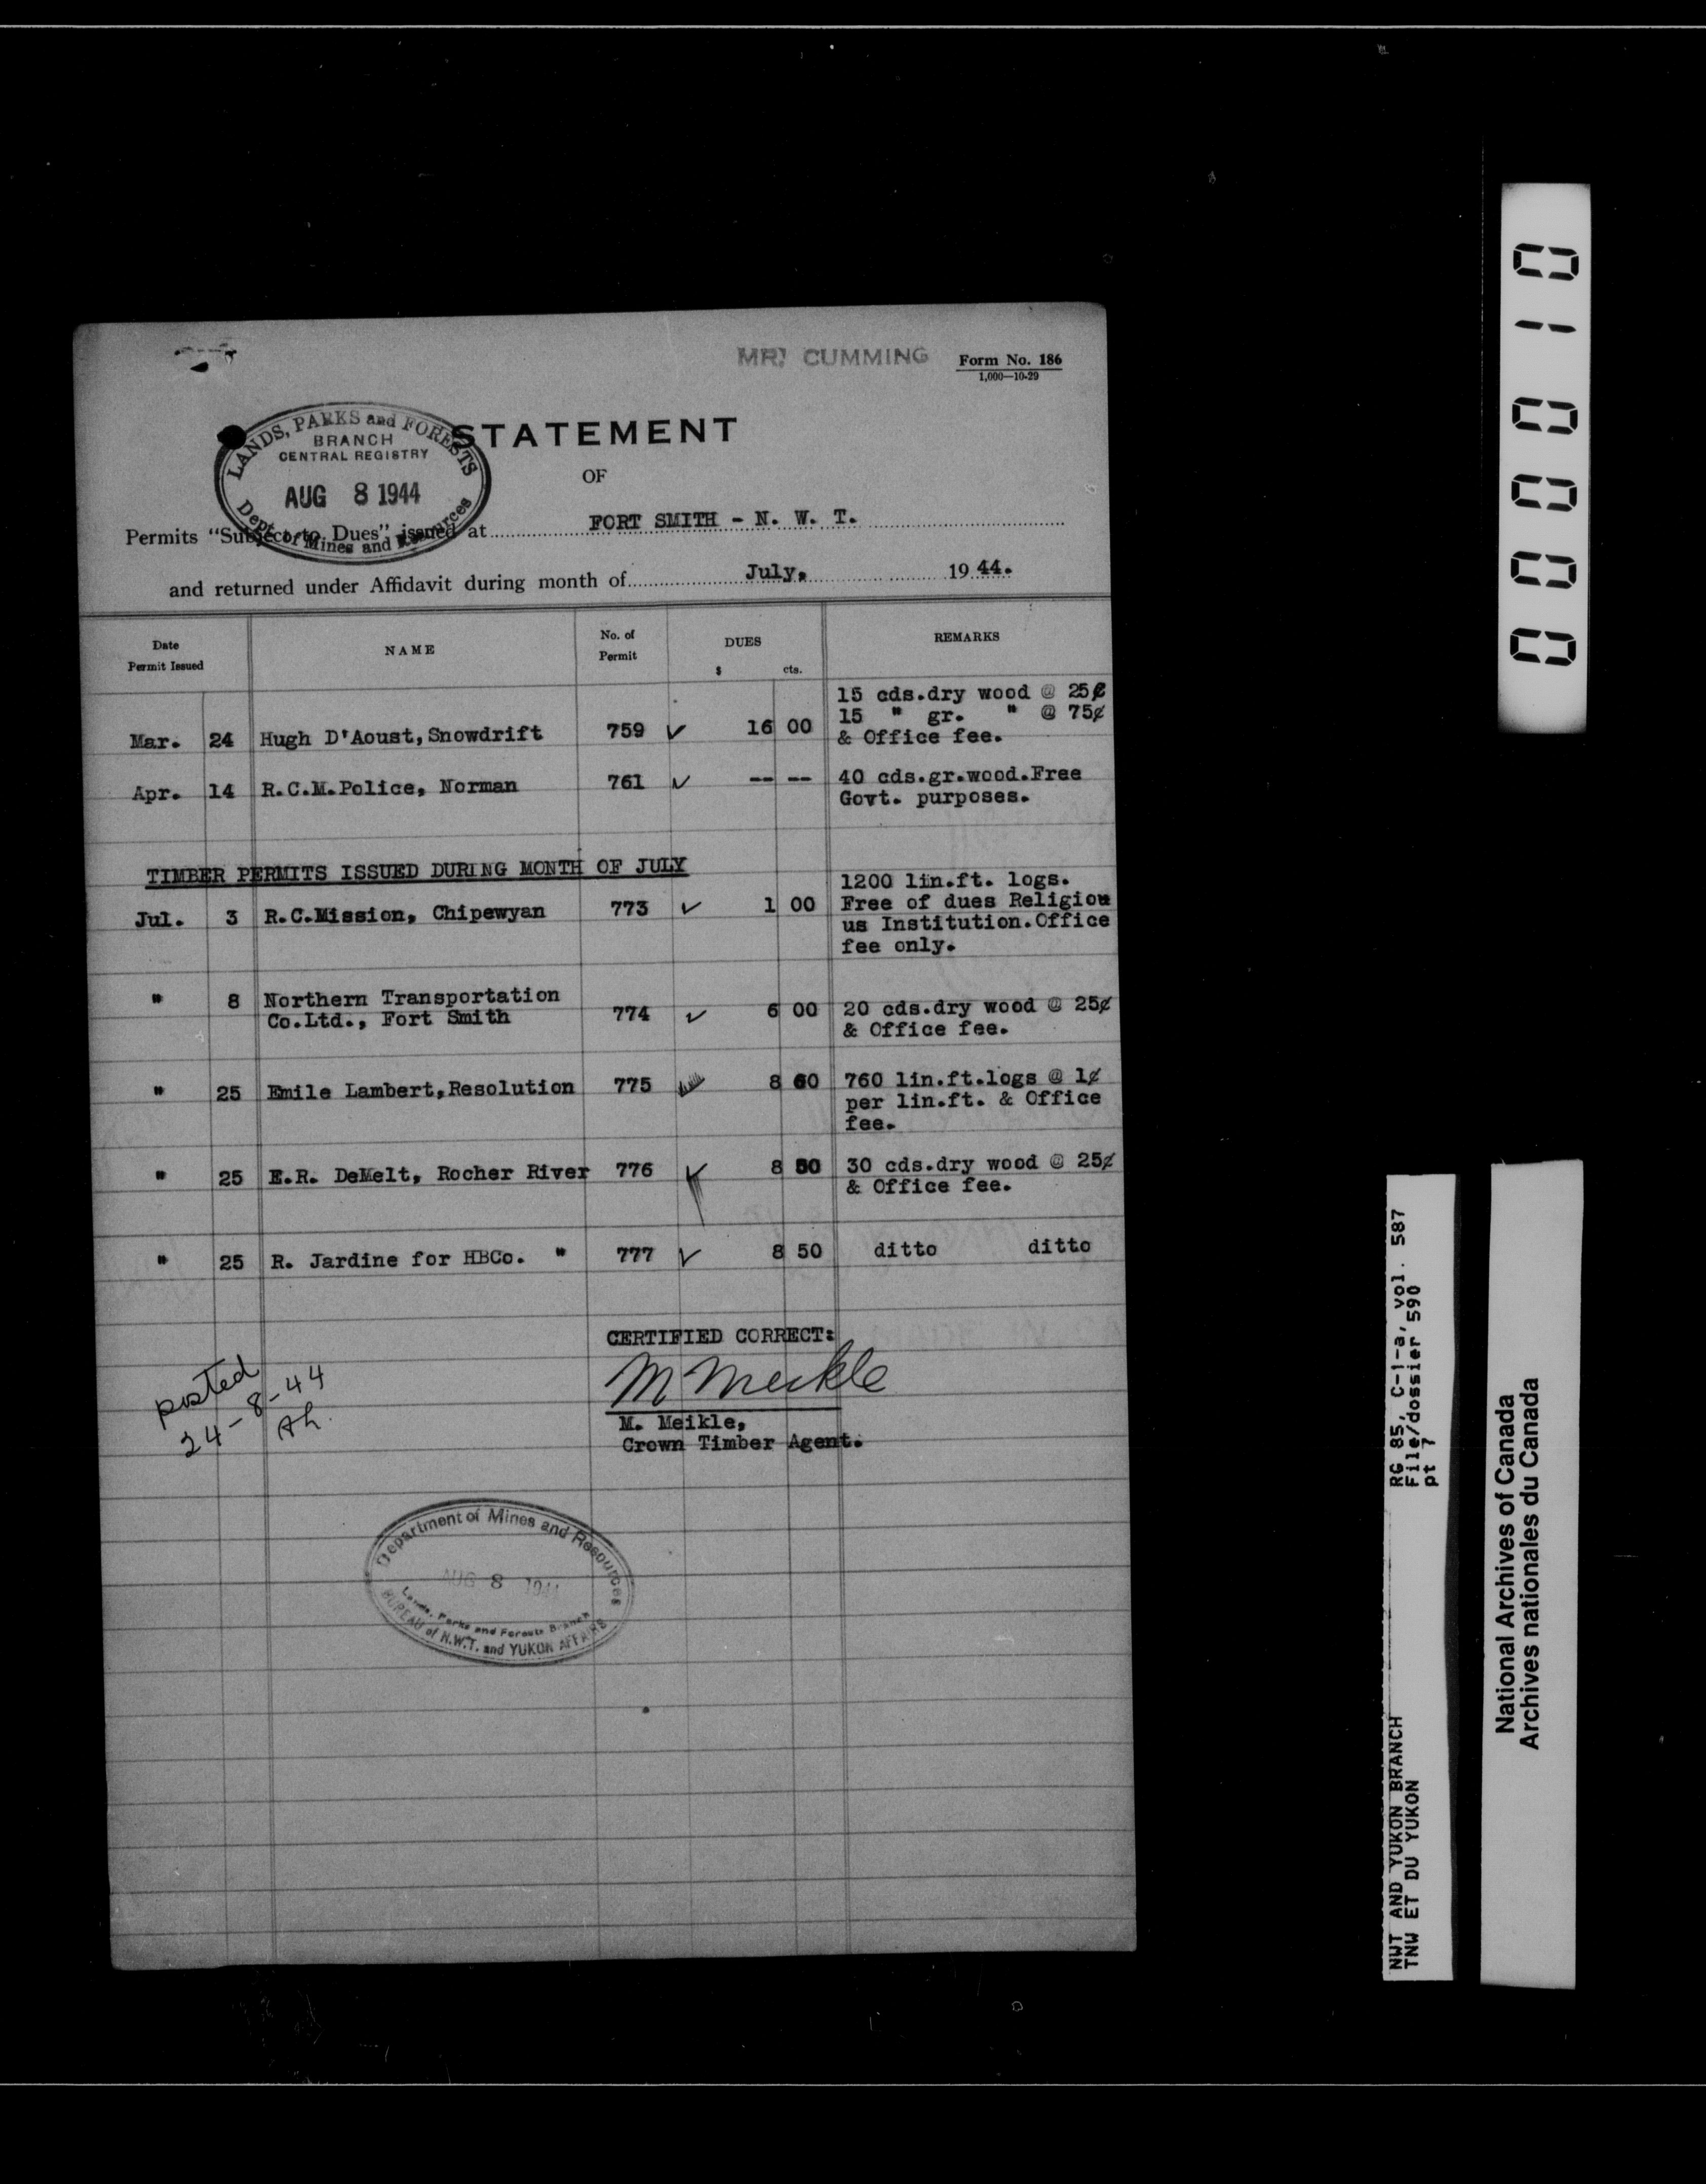 MR. CUMMING
Form No. 186
1,000—10-29
LANDS, PARKS and FORESTS
BRANCH
CENTRAL REGISTRY
AUG 8 1944
Dept. of Mines and Resources
STATEMENT
OF
Permits "Subject to Dues" issued at FORT SMITH - N. W. T.
and returned under Affidavit during month of July, 19 44.
Date Permit Issued NAME No. of Permit DUES $ cts. REMARKS
Mar. 24 Hugh D'Aoust, Snowdrift 759 ✓ 16 00 15 cds.dry wood @ 25¢
15 " gr. " @ 75¢
& Office fee.
Apr. 14 R.C.M.Police, Norman 761 ✓ -- -- 40 cds.gr.wood.Free
Govt. purposes.
TIMBER PERMITS ISSUED DURING MONTH OF JULY
Jul. 3 R.C.Mission, Chipewyan 773 ✓ 1 00 1200 lin.ft. logs.
Free of dues Religiou
us Institution.Office
fee only.
" 8 Northern Transportation
Co.Ltd., Fort Smith 774 ✓ 6 00 20 cds.dry wood @ 25¢
& Office fee.
" 25 Emile Lambert,Resolution 775 8 60 760 lin.ft.logs @ 1¢
per lin.ft. & Office
fee.
" 25 E.R. DeMelt, Rocher River 776 ✓ 8 50 30 cds.dry wood @ 25¢
& Office fee.
" 25 R. Jardine for HBCo. " 777 ✓ 8 50 ditto ditto
CERTIFIED CORRECT:
M Meikle
M. Meikle,
Crown Timber Agent.
posted
24-8-44
Department of Mines and Resources
AUG 8 1944
Lands, Parks and Forests Branch
BUREAU of N.W.T. and YUKON AFFAIRS
000010
RG 85, C-1-a, vol. 587
File/dossier 590
pt 7
NWT AND YUKON BRANCH
TNW ET DU YUKON
National Archives of Canada
Archives nationales du Canada